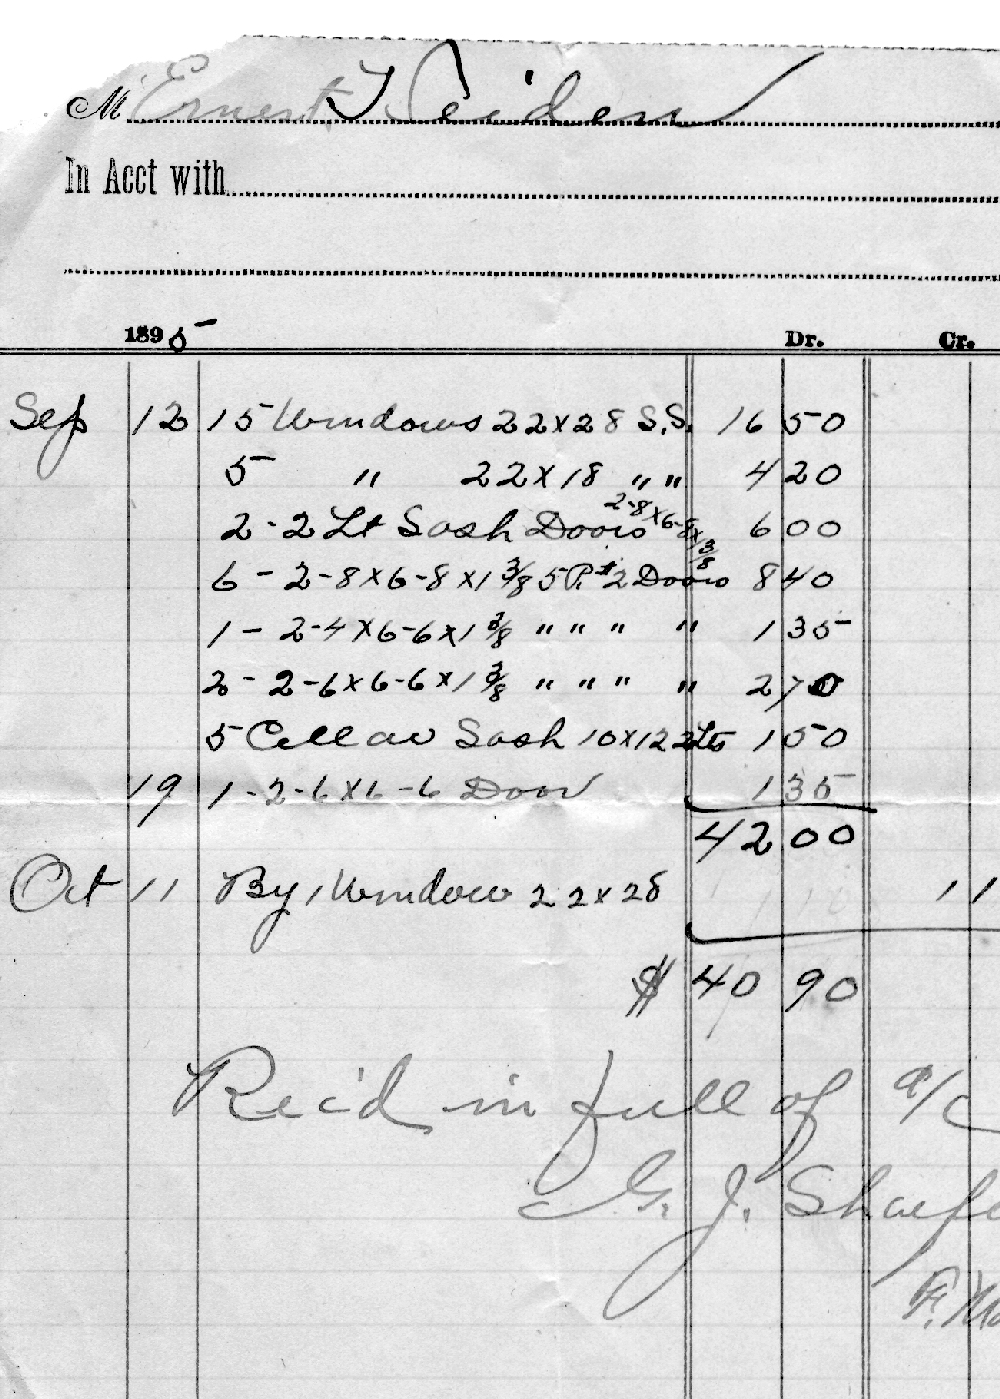 M Ernest Seiden
In Acct with
1895 Dr. Cr.
Sep 12 15 Windows 22x28 S.S. 16 50
5 " 22x18 " " 4 20
2-2 Lt Sash Doors 2-8x6-8x1 3/8 6 00
6 - 2-8x6-8x1 3/8 5 P. #2 Doors 8 40
1 - 2-4x6-6x1 3/8 " " " " 1 35
2 - 2-6x6-6x1 3/8 " " " " 2 70
5 Cellar Sash 10x12 3 Lts 1 50
19 1-2-6x6-6 Door 1 35
42 00
Oct 11 By 1 Window 22x28 1 1
$ 40 90
Rec'd in full of a/c
G. J. Shaefe
F.